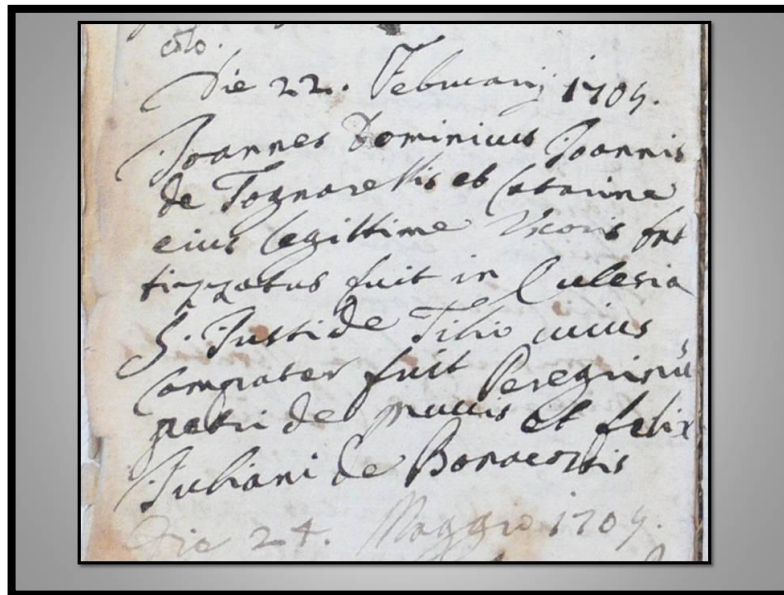 colo.
Die 22. Februarij 1705.
Joannes Dominicus Joannis
de Tognarellis et Catarine
eius legittime Uxoris bat
tizzatus fuit in Eculesia
S. Justi de Tilio cuius
Compater fuit Peregrinũ
petri de muccis et felix
Juliani de Bonacorsis
Die 24. Maggio 1705.